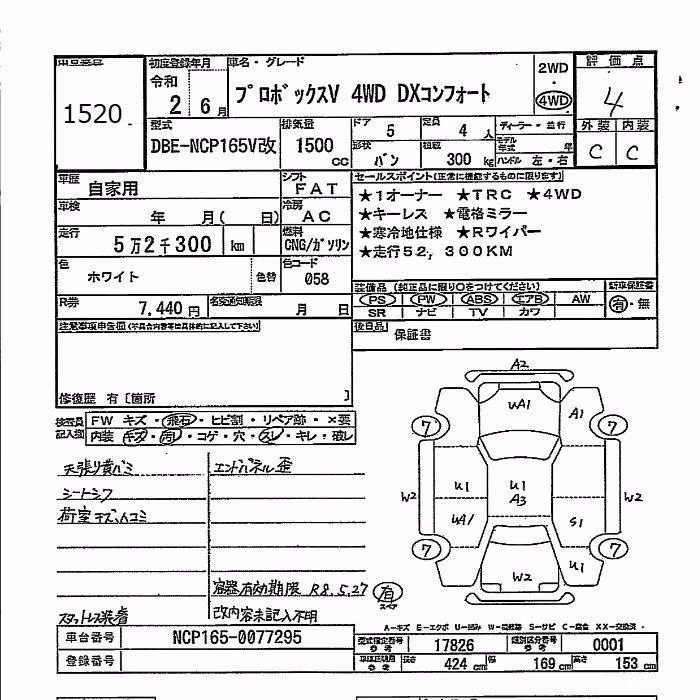 1520
初度登録年月
令和 2 6月
車名・グレード
プロボックスV 4WD DXコンフォート
2WD
・
4WD
評価点
4
外装 内装
C C
型式
DBE-NCP165V改
排気量
1500 CC
ドア
5
定員
4 人
形状
バン
300 kg
ディーラー・並行
モデル年式 年
ハンドル 左・右
車歴
自家用
シフト
FAT
車検
年 月( 日)
冷房
AC
走行
5万2千300 km
燃料
CNG/ガソリン
色
ホワイト
色替
色コード
058
R券
7,440円
月 日
セールスポイント(正常に機能するものに限ります)
★1オーナー ★TRC ★4WD
★キーレス ★電格ミラー
★寒冷地仕様 ★Rワイパー
★走行52,300KM
装備品(純正品に限り○をつけてください)
新車保証書
PS PW ABS エアB AW
SR ナビ TV カワ
有・無
後日品
保証書
注意事項申告国
修復歴 有〔箇所 〕
検査員記入欄
FW キズ・飛石・ヒビ割・リペア跡・×要
内装
コゲ・穴・スレ・キレ・破レ
シートシワ
エンドパネル歪
容器有効期限 R8.5.27
改内容未記入不明
スタットレス装着
A2
UA1
A1
7 7
U1
U1
A3
W2 W2
UA1
S1
7 7
U1
W2
有
スペア
A-キズ E-エクボ U-凹み
S-サビ C-腐食 XX-交換済
車台番号
NCP165-0077295
登録番号
型式指定番号
参考
17826
類別区分番号
参考
0001
長さ
424 cm
幅
169 cm
高さ
153 cm